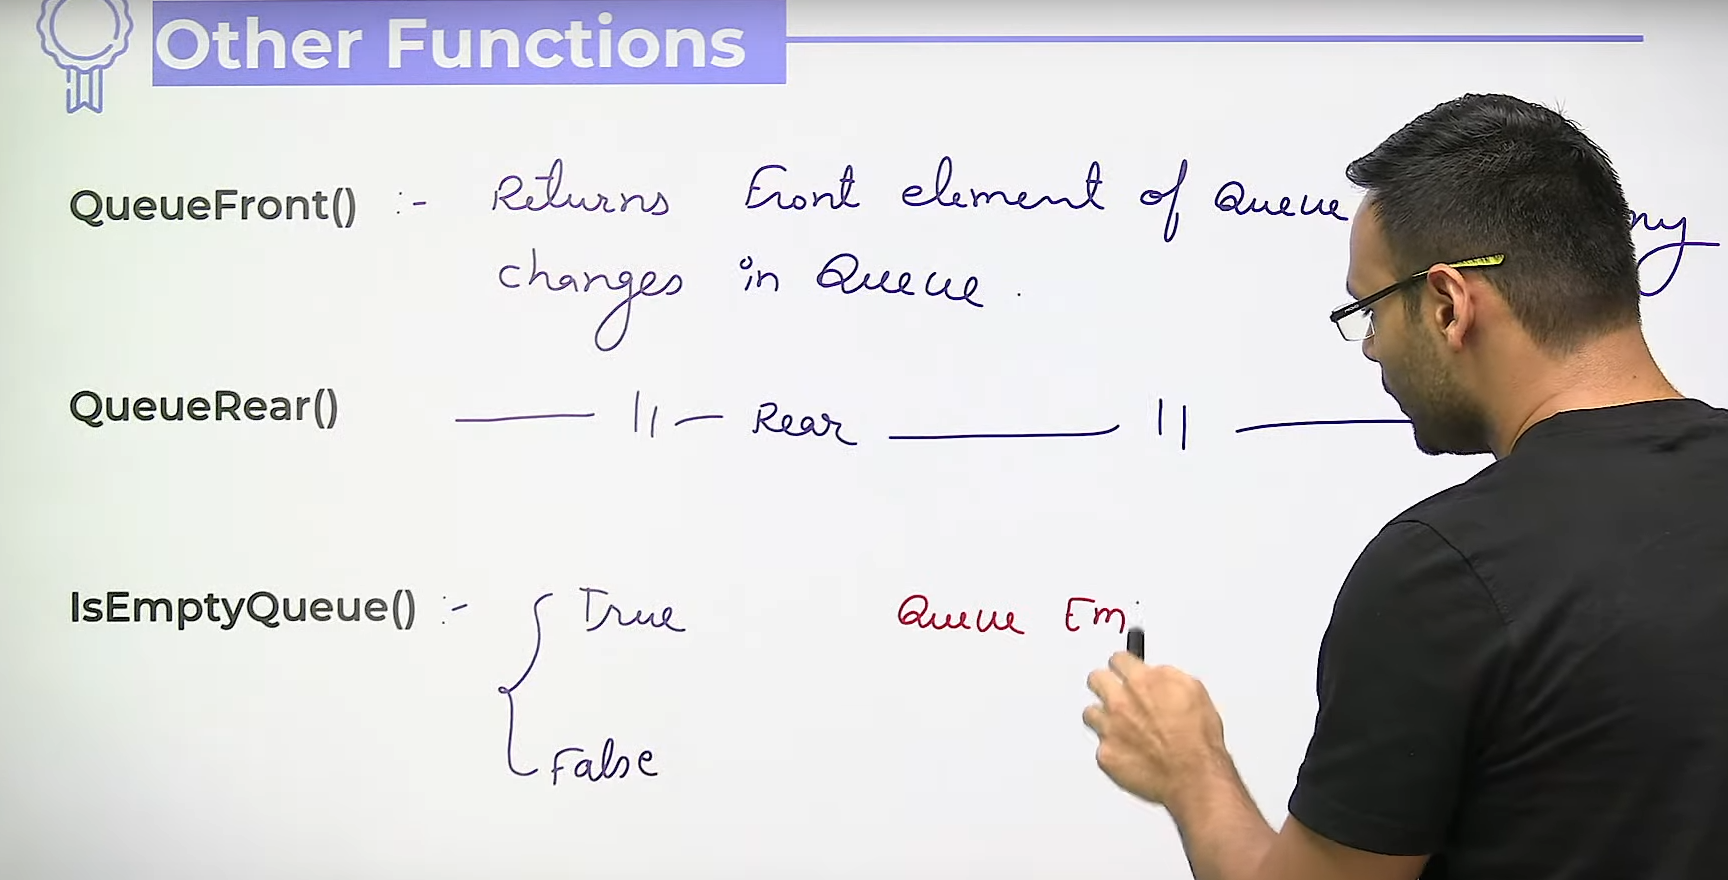 Other Functions
QueueFront() :- Returns Front element of Queue ny
changes in Queue.
QueueRear() —— 11 — Rear —— 11 ——
IsEmptyQueue() :- { True Queue Em
False